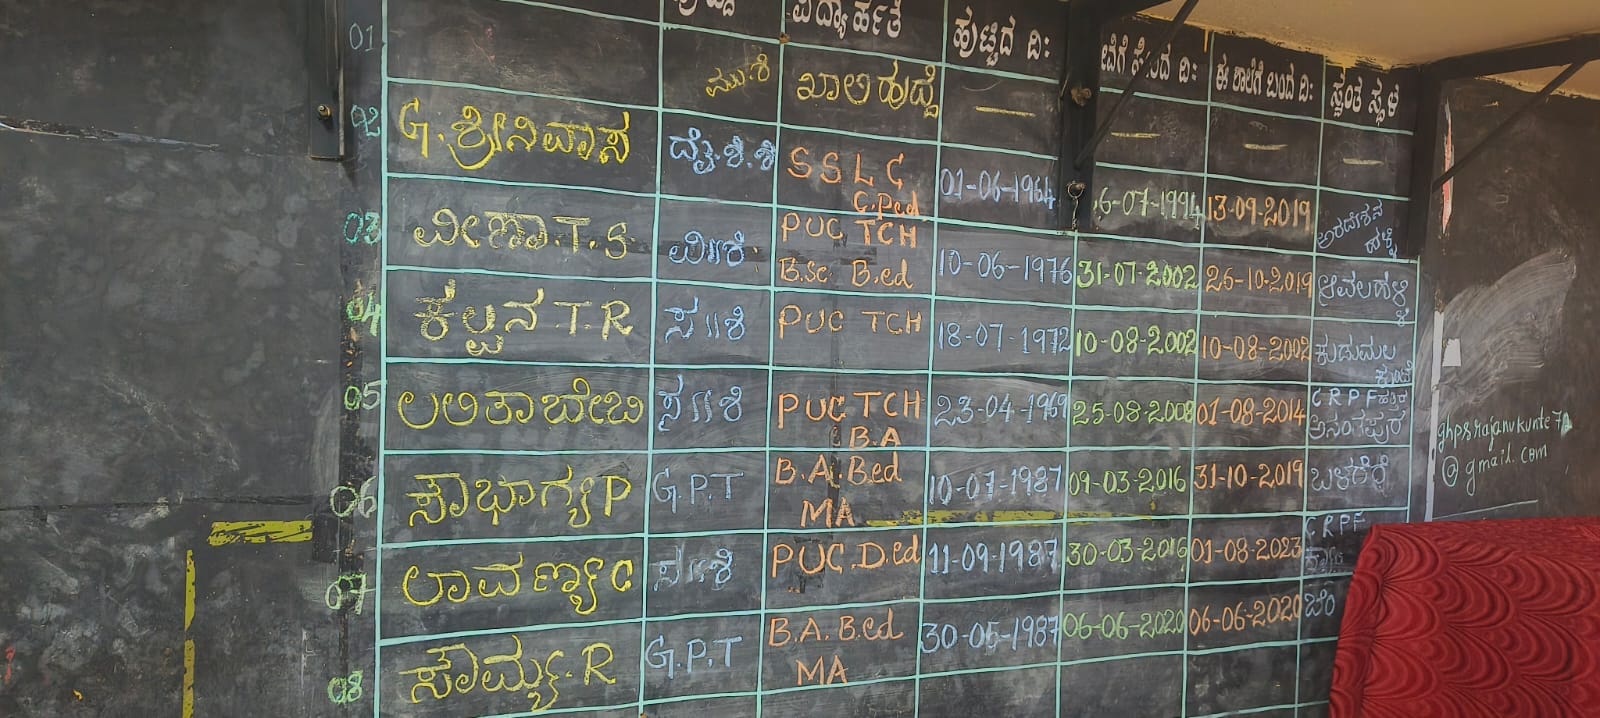 ವಿದ್ಯಾರ್ಹತೆ ಹುಟ್ಟಿದ ದಿ: ದಿ: ಈ ಶಾಲೆಗೆ ಬಂದ ದಿ: ಸ್ವಂತ ಸ್ಥಳ
01 ಮು.ಶಿ ಖಾಲಿ ಹುದ್ದೆ — — — —
02 G. ಶ್ರೀನಿವಾಸ ದೈ.ಶಿ.ಶಿ SSLC C.Ped 01-06-1964 6-07-1994 13-09-2019
03 ವೀಣಾ.T.S ವಿ॥ಶಿ PUC TCH B.Sc B.ed 10-06-1976 31-07-2002 26-10-2019 ಆವಲಹಳ್ಳಿ
04 ಕಲ್ಪನ.T.R ಸ॥ಶಿ PUC TCH 18-07-1972 10-08-2002 10-08-2002 ಕುಡುಮಲ ಕುಂಟೆ
05 ಲಲಿತಾಬೇಬಿ ಸ॥ಶಿ PUC TCH B.A 23-04-1969 25-08-2008 01-08-2014 CRPF ಹತ್ತಿರ
06 ಸೌಭಾಗ್ಯ P G.P.T B.A. Bed MA 10-07-1987 09-03-2016 31-10-2019
07 ಲಾವಣ್ಯ C ಸ॥ಶಿ PUC D.ed 11-09-1987 30-03-2016 01-08-2023 CRPF
08 ಸೌಮ್ಯ.R G.P.T B.A. B.ed MA 30-05-1987 06-06-2020 06-06-2020 ಬೆಂ
ghpsrajanukunte72
@gmail.com